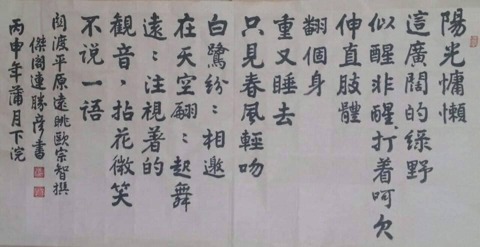 陽光慵懶
這廣闊的綠野
似醒非醒，打着呵欠
伸直肢體
翻個身
重又睡去
只見春風輕吻
白鷺紛：相邀
在天空翩：起舞
遠：注視著的
觀音，拈花微笑
不说一语
關渡平原遠眺歐宗智撰
傑閣連勝彥書
丙申年蒲月下浣